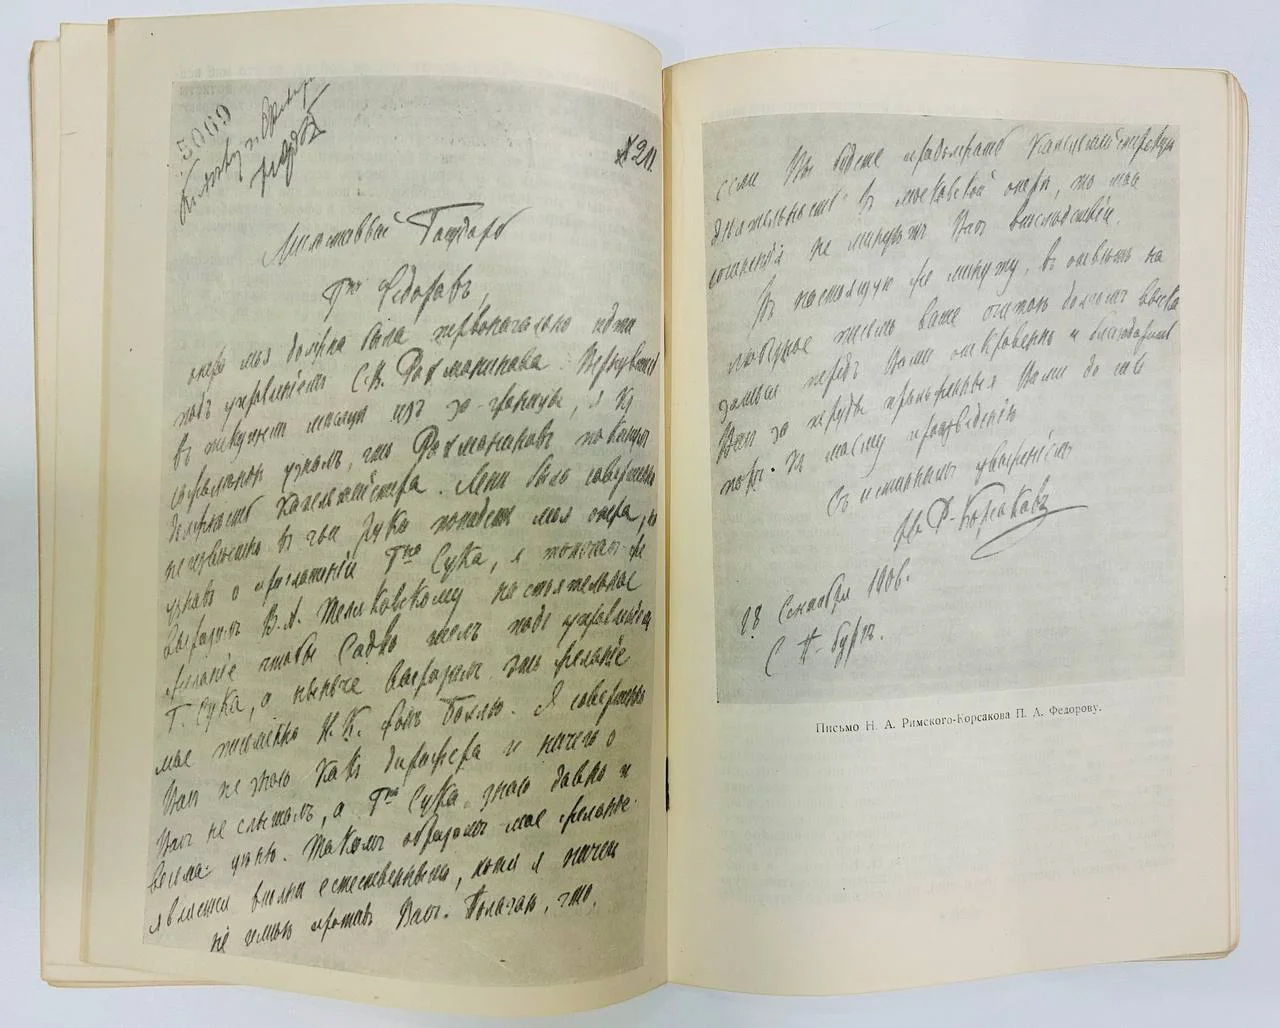 5069
№ 211.
Милостивый Государь
Гнъ Федоровъ,
опера моя должна была первоначально идти
подъ управленіемъ С. В. Рахманинова. Вернувшись
въ текущемъ мѣсяцѣ изъ за-границы, я къ
сожалѣнію узналъ, что Рахманиновъ покинулъ
должность капельмейстера. Мнѣ было совершенно
неизвѣстно въ чьи руки попадетъ моя опера, но
узнавъ о приглашеніи Гна Сука, я тотчасъ-же
выразилъ В. А. Теляковскому настоятельное
желаніе чтобы Садко шелъ подъ управленіемъ
Г. Сука, а нынѣ выразилъ это желаніе
мое письменно Н. К. фонъ Боолю. Я совершенно
Васъ не знаю какъ дирижера и ничего о
Васъ не слыталъ, а Гна Сука знаю давно и
весьма цѣню. Такимъ образомъ мое желаніе
является вполнѣ естественнымъ, хотя я ничего
не имѣю противъ Васъ. Полагаю, что,
если Вы будете продолжать капельмейстерскую
дѣятельность въ московской оперѣ, то мои
сочиненія не минуютъ Васъ впослѣдствіи.
Въ настоящую же минуту, въ отвѣтъ на
любезное письмо ваше считаю долгомъ
передъ Вами откровенно и благодарить
Васъ за труды приложенные Вами до сей
поры къ моему произведенію
Съ истиннымъ уваженіемъ
Н. Р-Корсаковъ
18 Сентября 1906.
С П-бургъ.
Письмо Н. А. Римского-Корсакова П. А. Федорову.